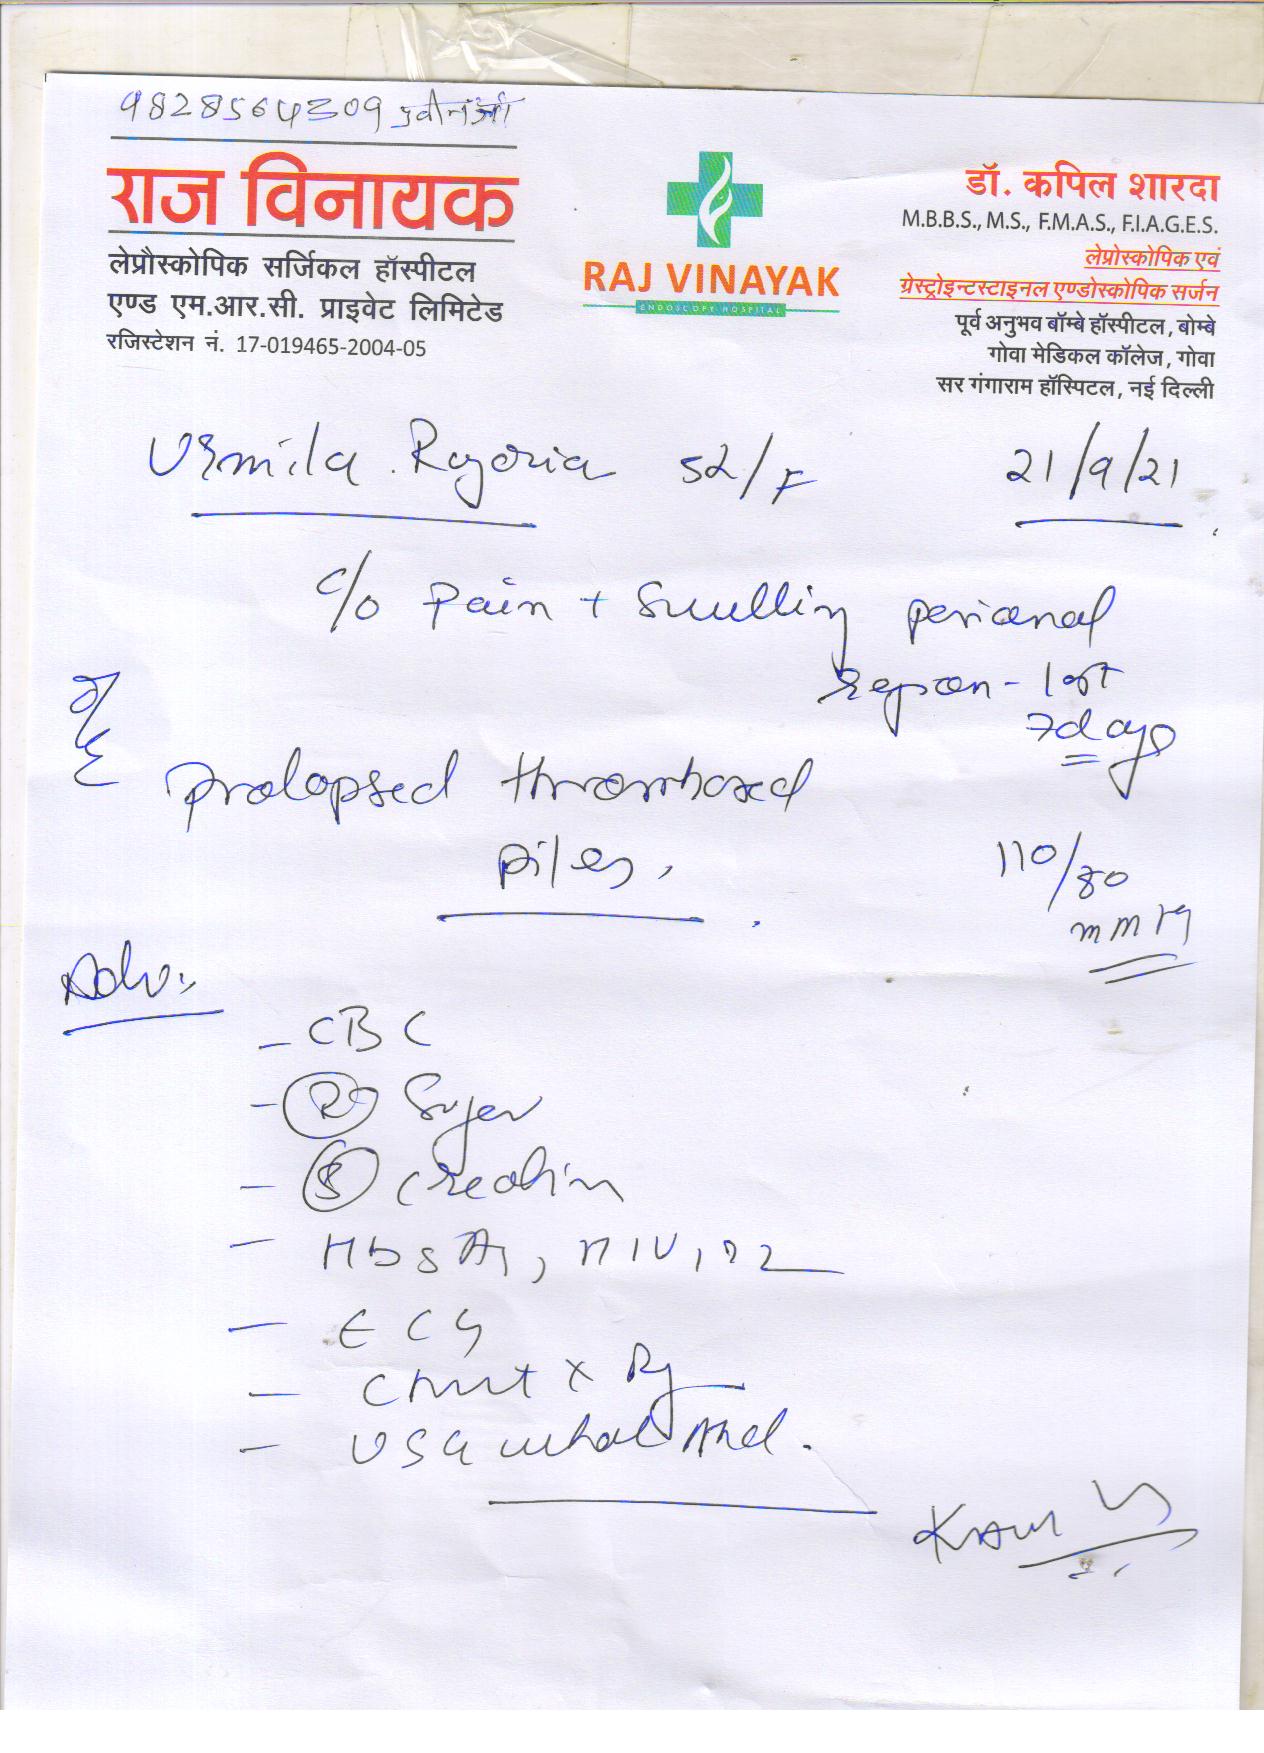 9828564309
राज विनायक
लेप्रौस्कोपिक सर्जिकल हॉस्पीटल
एण्ड एम.आर.सी. प्राइवेट लिमिटेड
रजिस्टेशन नं. 17-019465-2004-05
RAJ VINAYAK
ENDOSCOPY HOSPITAL
डॉ. कपिल शारदा
M.B.B.S., M.S., F.M.A.S., F.I.A.G.E.S.
लेप्रोस्कोपिक एवं
ग्रेस्ट्रोइन्टस्टाइनल एण्डोस्कोपिक सर्जन
पूर्व अनुभव बॉम्बे हॉस्पीटल, बोम्बे
गोवा मेडिकल कॉलेज, गोवा
सर गंगाराम हॉस्पिटल, नई दिल्ली
Urmila . Rajoria 52/F 21/9/21
c/o Pain + Swelling perianal
region - last
7 days
O/E
prolapsed thrombosed
piles.
110/80
mmHg
Adv:
- CBC
- (R) Sugar
- (S) Creatinin
- HbsAg, HIV,
- ECG
- Chest X Ray
- USG whole Abd.